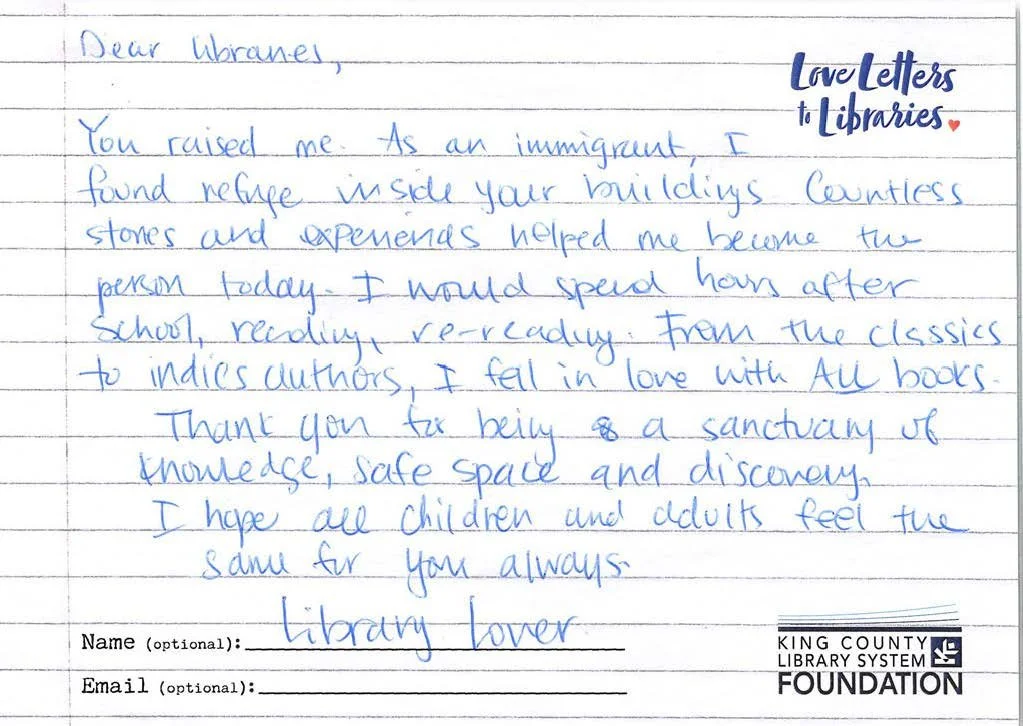 Dear libraries,
Love Letters
to Libraries.
You raised me. As an immigrant, I
found refuge inside your buildings. Countless
stories and experiences helped me become the
person today. I would spend hours after
school, reading, re-reading. From the classics
to indies authors, I fell in love with ALL books.
Thank you for being a sanctuary of
knowledge, safe space and discovery.
I hope all children and adults feel the
same for you always.
Name (optional): Library Lover
Email (optional):
KING COUNTY
LIBRARY SYSTEM
FOUNDATION